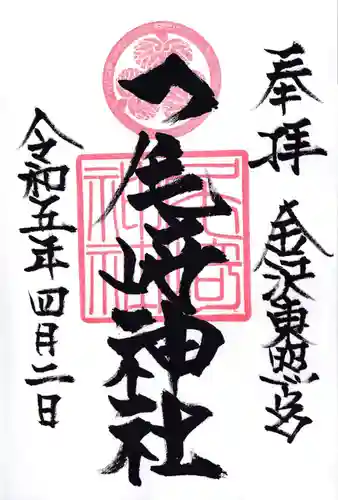 奉拝
金沢東照宮
尾﨑神社
令和五年四月二日